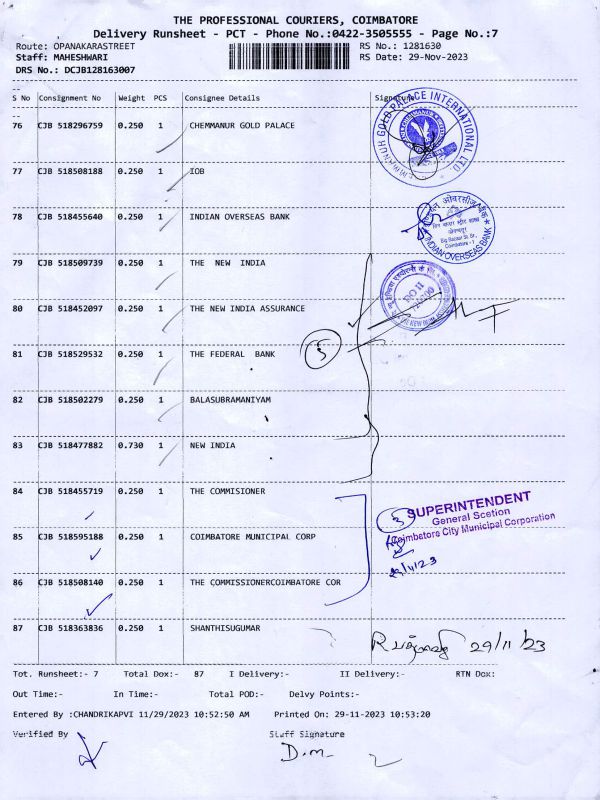 THE PROFESSIONAL COURIERS, COIMBATORE
Delivery Runsheet - PCT - Phone No.:0422-3505555 - Page No.:7
Route: OPANAKARASTREET RS No.: 1281630
Staff: MAHESHWARI RS Date: 29-Nov-2023
DRS No.: DCJB128163007
S No Consignment No Weight PCS Consignee Details Signature
76 CJB 518296759 0.250 1 CHEMMANUR GOLD PALACE
77 CJB 518508188 0.250 1 IOB
78 CJB 518455640 0.250 1 INDIAN OVERSEAS BANK
INDIAN OVERSEAS BANK
79 CJB 518509739 0.250 1 THE NEW INDIA
80 CJB 518452097 0.250 1 THE NEW INDIA ASSURANCE
81 CJB 518529532 0.250 1 THE FEDERAL BANK
5
82 CJB 518502279 0.250 1 BALASUBRAMANIYAM
83 CJB 518477882 0.730 1 NEW INDIA
84 CJB 518455719 0.250 1 THE COMMISIONER
3 SUPERINTENDENT
General Scetion
Coimbatore City Municipal Corporation
85 CJB 518595188 0.250 1 COIMBATORE MUNICIPAL CORP
86 CJB 518508140 0.250 1 THE COMMISSIONERCOIMBATORE COR
87 CJB 518363836 0.250 1 SHANTHISUGUMAR
29/11/23
Tot. Runsheet:- 7 Total Dox:- 87 I Delivery:- II Delivery:- RTN Dox:
Out Time:- In Time:- Total POD:- Delvy Points:-
Entered By :CHANDRIKAPVI 11/29/2023 10:52:50 AM Printed On: 29-11-2023 10:53:20
Verified By Staff Signature
D.m.